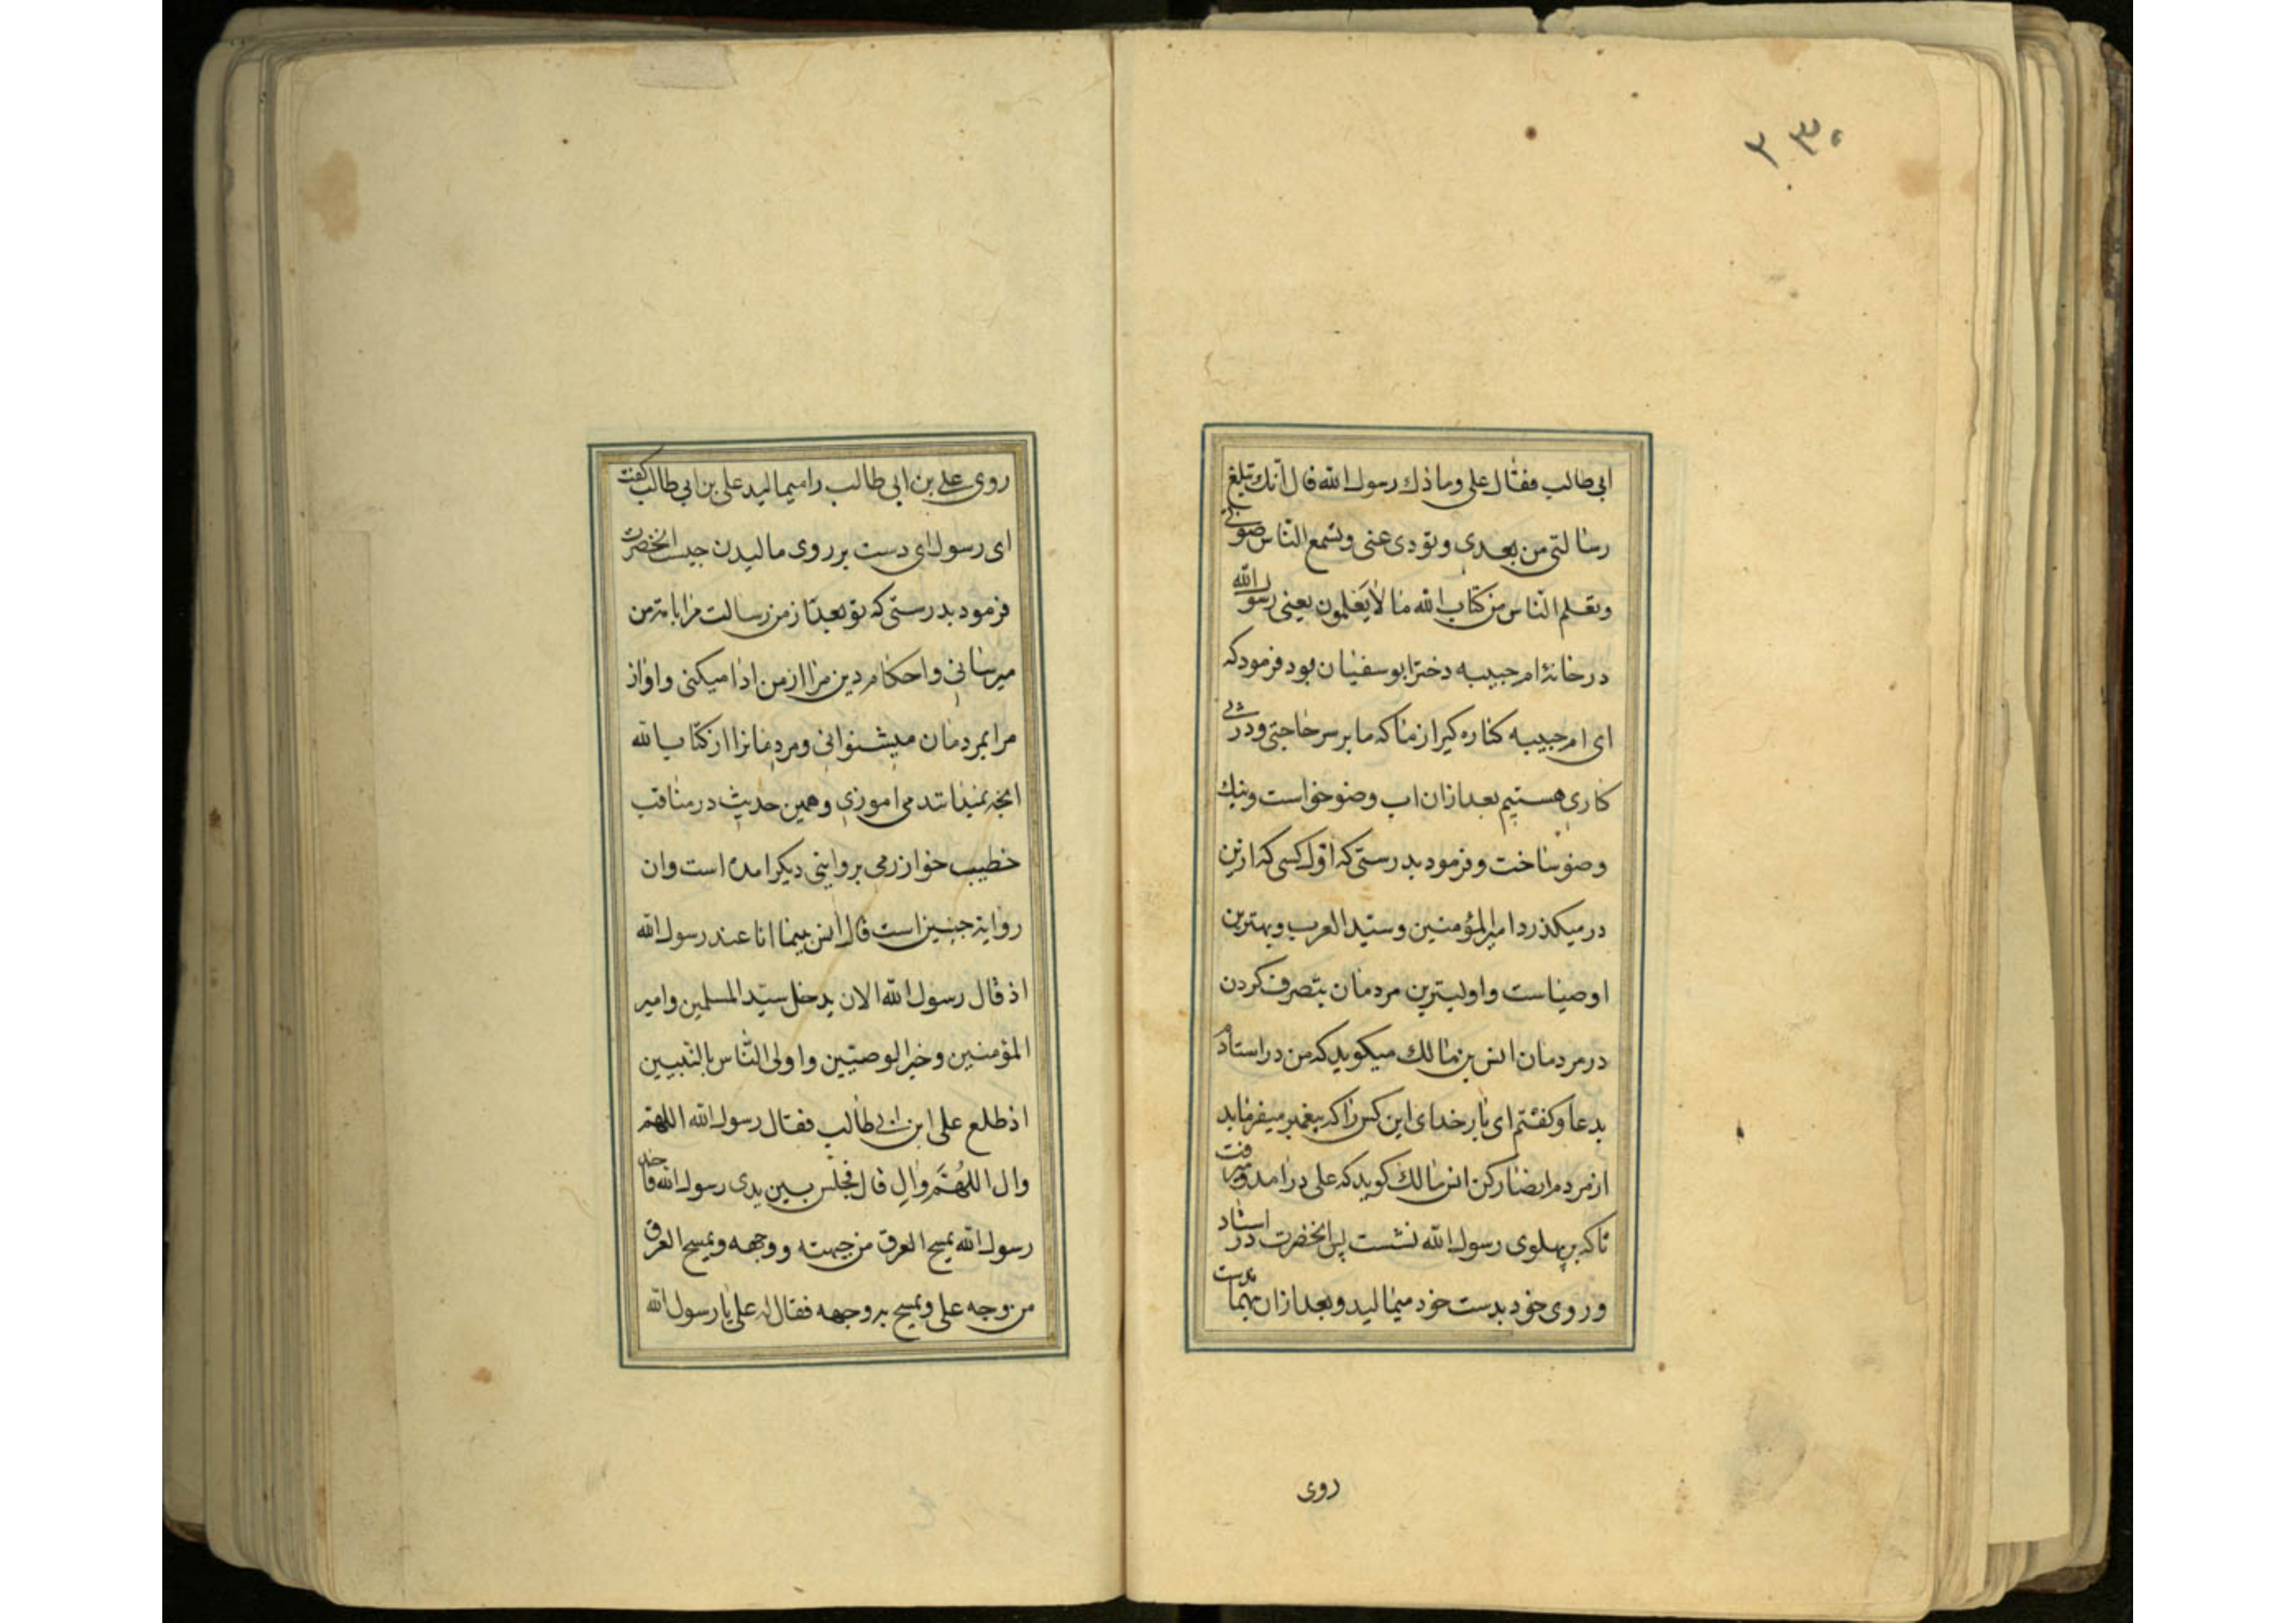 ۲۳۰
ابی طالب فقال علی وما ذلك رسول الله قال انك تبلغ
رسالتی من بعدی وتودی عنی وتسمع الناس صوتی
وتعلم الناس من كتاب الله ما لا یعلمون یعنی رسول الله
در خانۀ ام حبیبه دختر ابوسفیان بود فرمود که
ای ام حبیبه کناره کیر از ما که ما بر سر حاجتی ودر
کاری هستیم بعد ازان اب وضو خواست ونیك
وضو ساخت وفرمود بدرستی که اول کسی که ازین
در میکذرد امیر المؤمنین وسید العرب وبهترین
اوصیاست واولیترین مردمان بتصرف کردن
در مردمان انس بن مالك میکوید که من در استادم
بدعا وکفتم ای بار خدای این کس را که پیغمبر میفرماید
از مردم انصار کن انس مالك کوید که علی درامد
تا که بر پهلوی رسول الله نشست پس انحضرت در استاد
و روی خود بدست خود میمالید وبعد ازان بهمان دست
روی
روی علی بن ابی طالب را میمالید علی بن ابی طالب کفت
ای رسول ای دست بر روی مالیدن چیست انحضرت
فرمود بدرستی که تو بعد از من رسالت مرا بامت من
میرسانی واحکام دین مرا از من ادا میکنی واواز
مرا بمردمان میشنوانی ومردمانرا از کتاب الله
انچه نمیدانند می اموزی وهمین حدیث در مناقب
خطیب خوارزمی بروایتی دیکر امده است وان
روایة چنین است قال انس بینما انا عند رسول الله
اذ قال رسول الله الان یدخل سید المسلمین وامیر
المؤمنین وخیر الوصیین واولی الناس بالنبیین
اذ طلع علی ابن ابی طالب فقال رسول الله اللهم
وال اللهم وال قال فجلس بین یدی رسول الله فاخذ
رسول الله یمسح العرق من جبهته ووجهه ویمسح العرق
من وجه علی ویمسح به وجهه فقال له علی یا رسول الله